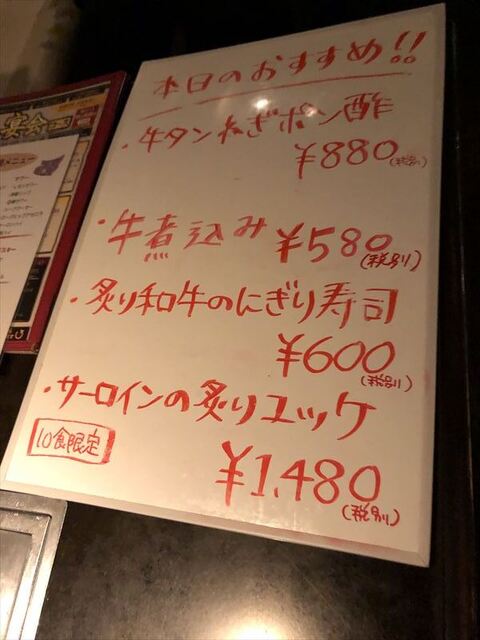 本日のおすすめ!!
・牛タンねぎポン酢
¥880(税別)
・牛煮込み ¥580(税別)
・炙り和牛のにぎり寿司
¥600(税別)
・サーロインの炙りユッケ
10食限定
¥1,480(税別)
宴会